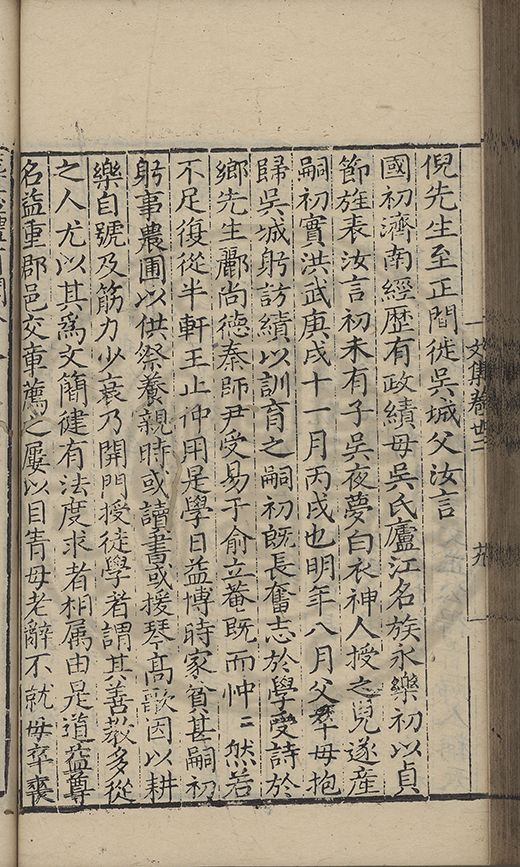 文集卷廿二
倪先生至正間徙吳城父汝言
國初濟南經歷有政績母吳氏廬江名族永樂初以貞
節旌表汝言初未有子吳夜夢白衣神人授之兒遂產
嗣初實洪武庚戌十一月丙戌也明年八月父卒母抱
歸吳城躬訪績以訓育之嗣初旣長奮志於學受詩於
鄉先生酈尚德秦師尹受易于俞立菴旣而忡二然若
不足復從半軒王止仲用是學日益博時家貧甚嗣初
躬事農圃以供祭養親時或讀書或援琴高歌因以耕
樂自號及筋力少衰乃開門授徒學者謂其善教多從
之人尤以其爲文簡健有法度求者相属由是道益尊
名益重郡邑交章薦之屢以目眚母老辭不就母卒喪